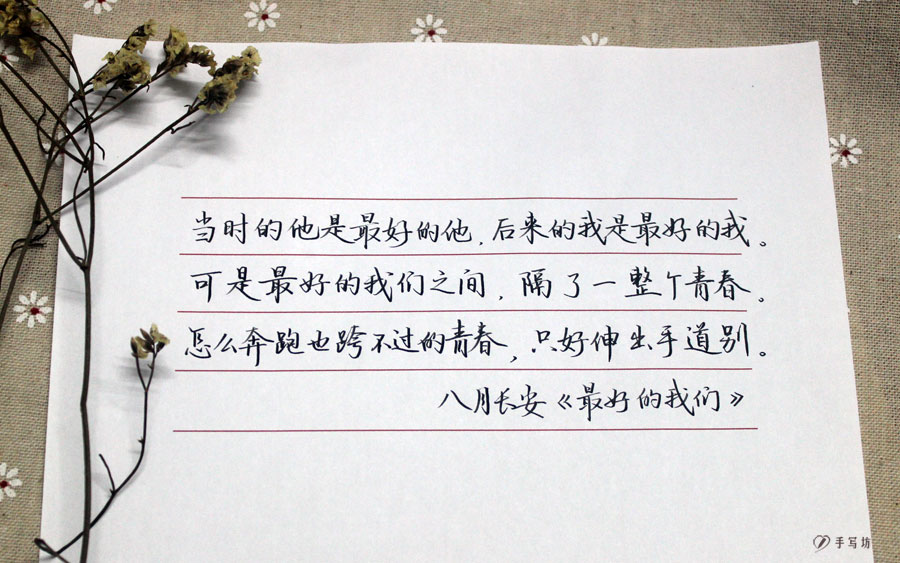 当时的他是最好的他，后来的我是最好的我。
可是最好的我们之间，隔了一整个青春。
怎么奔跑也跨不过的青春，只好伸出手道别。
八月长安《最好的我们》
手写坊